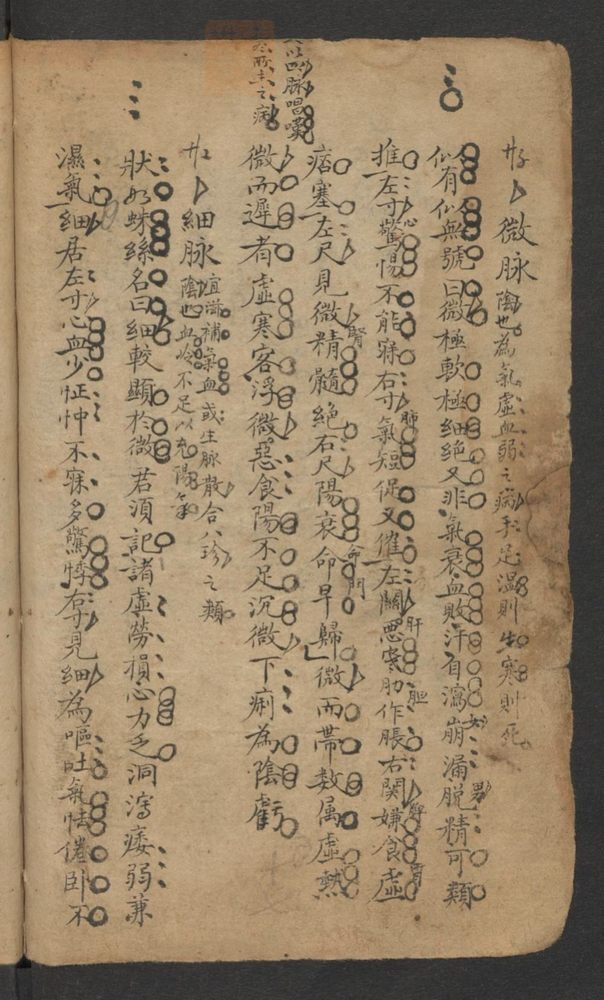 微脉 陰也為氣虛血弱之病手足溫則生寒則死
似有似無號曰微極軟極細絕又非氣衰血敗汗自瀉崩漏脱精可類
女
男
推左寸驚惕不能寐右寸氣短促又催左關惡寒肋作脹右関嫌食虛
心
肺
肝
胆
脾
胃
痞塞左尺見微精髓絕右尺陽衰命早歸微而帶数属虛熱
腎
命門
微而遲者虛寒客浮微惡食陽不足沉微下痢為陰虧
脉唱嘆
所主之病
細脉 宜滋補氣血或生脉散合八珍之類
陰也血冷不足以充陽氣
狀如蛛絲名曰細較顯於微君須記諸虛勞損心力乏洞瀉痿弱兼
濕氣細居左寸心血少怔忡不寐多驚悸右寸見細為嘔吐氣怯倦卧不